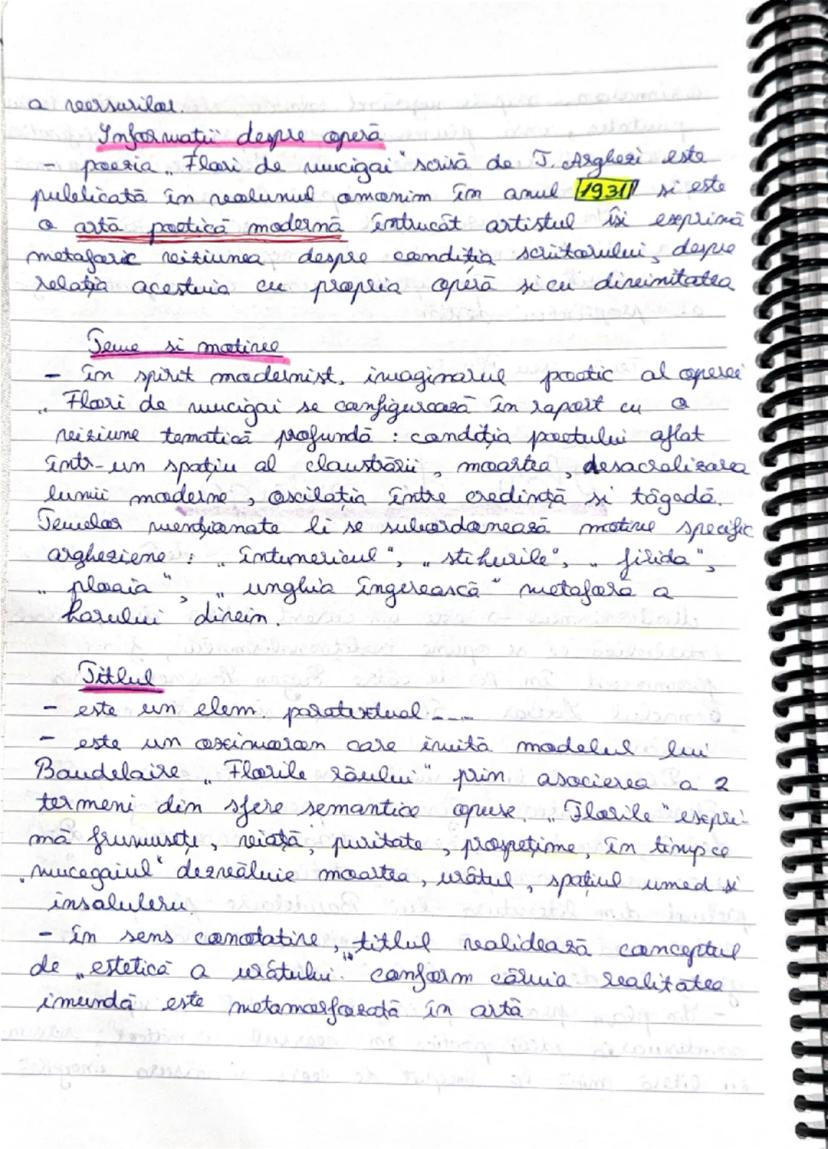 a versurilor.
Informații despre operă
- poezia „Flori de mucigai" scrisă de T. Arghezi este
publicată în volumul omonim în anul 1931 si este
o artă poetică modernă întrucât artistul își exprimă
metaforic viziunea despre condiția scriitorului, despre
relația acestuia cu propria operă si cu divinitatea
Teme si motive
- în spirit modernist, imaginarul poetic al operei
„Flori de mucigai se configurează în raport cu o
viziune tematică profundă : condiția poetului aflat
într-un spațiu al claustrării, moartea, desacralizarea
lumii moderne, oscilația între credință si tăgadă.
Temelor menționate li se subordonează motive specific
argheziene : „întunericul", „stihurile", „firida",
„ploaia", „unghia îngerească" metafora a
harului divin.
Titlul
- este un elem. paratextual ----
- este un oximoron care imită modelul lui
Baudelaire „Florile răului" prin asocierea a 2
termeni din sfere semantice opuse. „Florile" expri-
mă frumusețe, viață, puritate, prospețime, în timp ce
„mucegaiul" dezvăluie moartea, urâtul, spațiul umed si
insalubru.
- în sens conotativ, titlul validează conceptul
de „estetică a urâtului" conform căruia realitatea
imundă este metamorfozată în artă